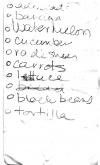 banana
Watermelon
cucumber
radishes
carrots
lettuce
bread
black beans
tortilla